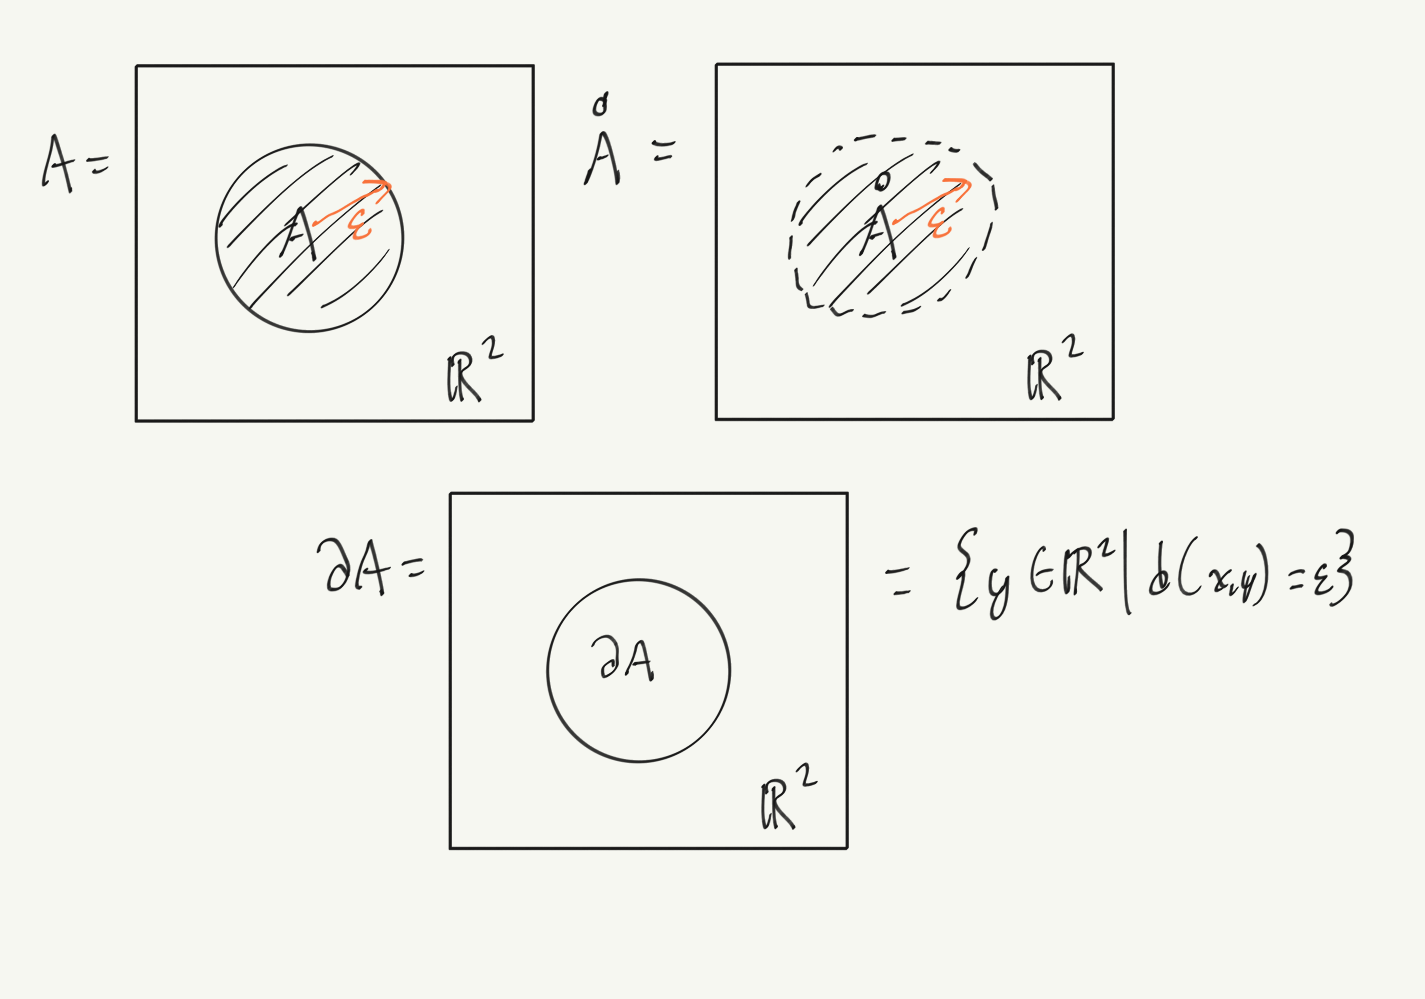 A =
A
ε
ℝ²
Å =
Å
ε
ℝ²
∂A =
∂A
ℝ²
= {y ∈ ℝ² | d(x,y) = ε}